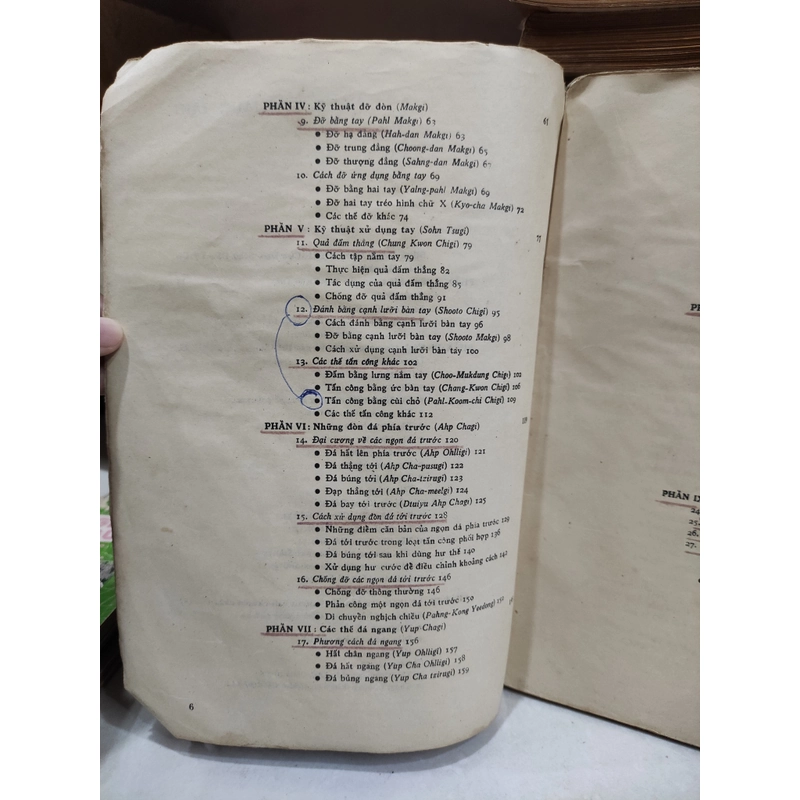 PHẦN IV : Kỹ thuật đỡ đòn (Makgi) 61
9. Đỡ bằng tay (Pahl Makgi) 63
• Đỡ hạ đẳng (Hah-dan Makgi) 63
• Đỡ trung đẳng (Choong-dan Makgi) 65
• Đỡ thượng đẳng (Sahng-dan Makgi)
10. Cách đỡ ứng dụng bằng tay 69
• Đỡ bằng hai tay (Yahng-pahl Makgi) 69
• Đỡ hai tay tréo hình chữ X (Kyo-cha Makgi) 72
• Các thế đỡ khác 74
PHẦN V : Kỹ thuật xử dụng tay (Sohn Tsugi) 77
11. Quả đấm thẳng (Chung Kwon Chigi) 79
• Cách tập nắm tay 79
• Thực hiện quả đấm thẳng 82
• Tác dụng của quả đấm thẳng 85
• Chống đỡ quả đấm thẳng 91
12. Đánh bằng cạnh lưỡi bàn tay (Shooto Chigi) 95
• Cách đánh bằng cạnh lưỡi bàn tay 96
• Đỡ bằng cạnh lưỡi bàn tay (Shooto Makgi) 98
• Cách xử dụng cạnh lưỡi bàn tay 100
13. Các thế tấn công khác 102
• Đấm bằng lưng nắm tay (Choo-Mukdung Chigi) 102
• Tấn công bằng ức bàn tay (Chang-Kwon Chigi) 106
• Tấn công bằng cùi chỏ (Pahl-Koom-chi Chigi) 109
• Các thế tấn công khác 112
PHẦN VI : Những đòn đá phía trước (Ahp Chagi)
14. Đại cương về các ngọn đá trước 120
• Đá hất lên phía trước (Ahp Ohlligi) 121
• Đá thẳng tới (Ahp Cha-pusugi) 122
• Đá búng tới (Ahp Cha-tzirugi) 123
• Đạp thẳng tới (Ahp Cha-meelgi) 124
• Đá bay tới trước (Dtuiyu Ahp Chagi) 125
15. Cách xử dụng đòn đá tới trước 128
• Những điểm căn bản của ngọn đá phía trước 129
• Đá tới trước trong loạt tấn công phối hợp 136
• Đá búng tới sau khi dùng hư thế 140
• Xử dụng hư cước để điều chỉnh khoảng cách 142
16. Chống đỡ các ngọn đá tới trước 146
• Chống đỡ thông thường 146
• Phản công một ngọn đá tới trước 150
• Di chuyển nghịch chiều (Pahng-Kong Yeodong)
PHẦN VII : Các thế đá ngang (Yup Chagi)
17. Phương cách đá ngang 156
• Hất chân ngang (Yup Ohlligi) 157
• Đá hất ngang (Yup Cha Ohlligi) 158
• Đá búng ngang (Yup Cha tzirugi) 159
6
PHẦN IX
24.
25.
26.
27.